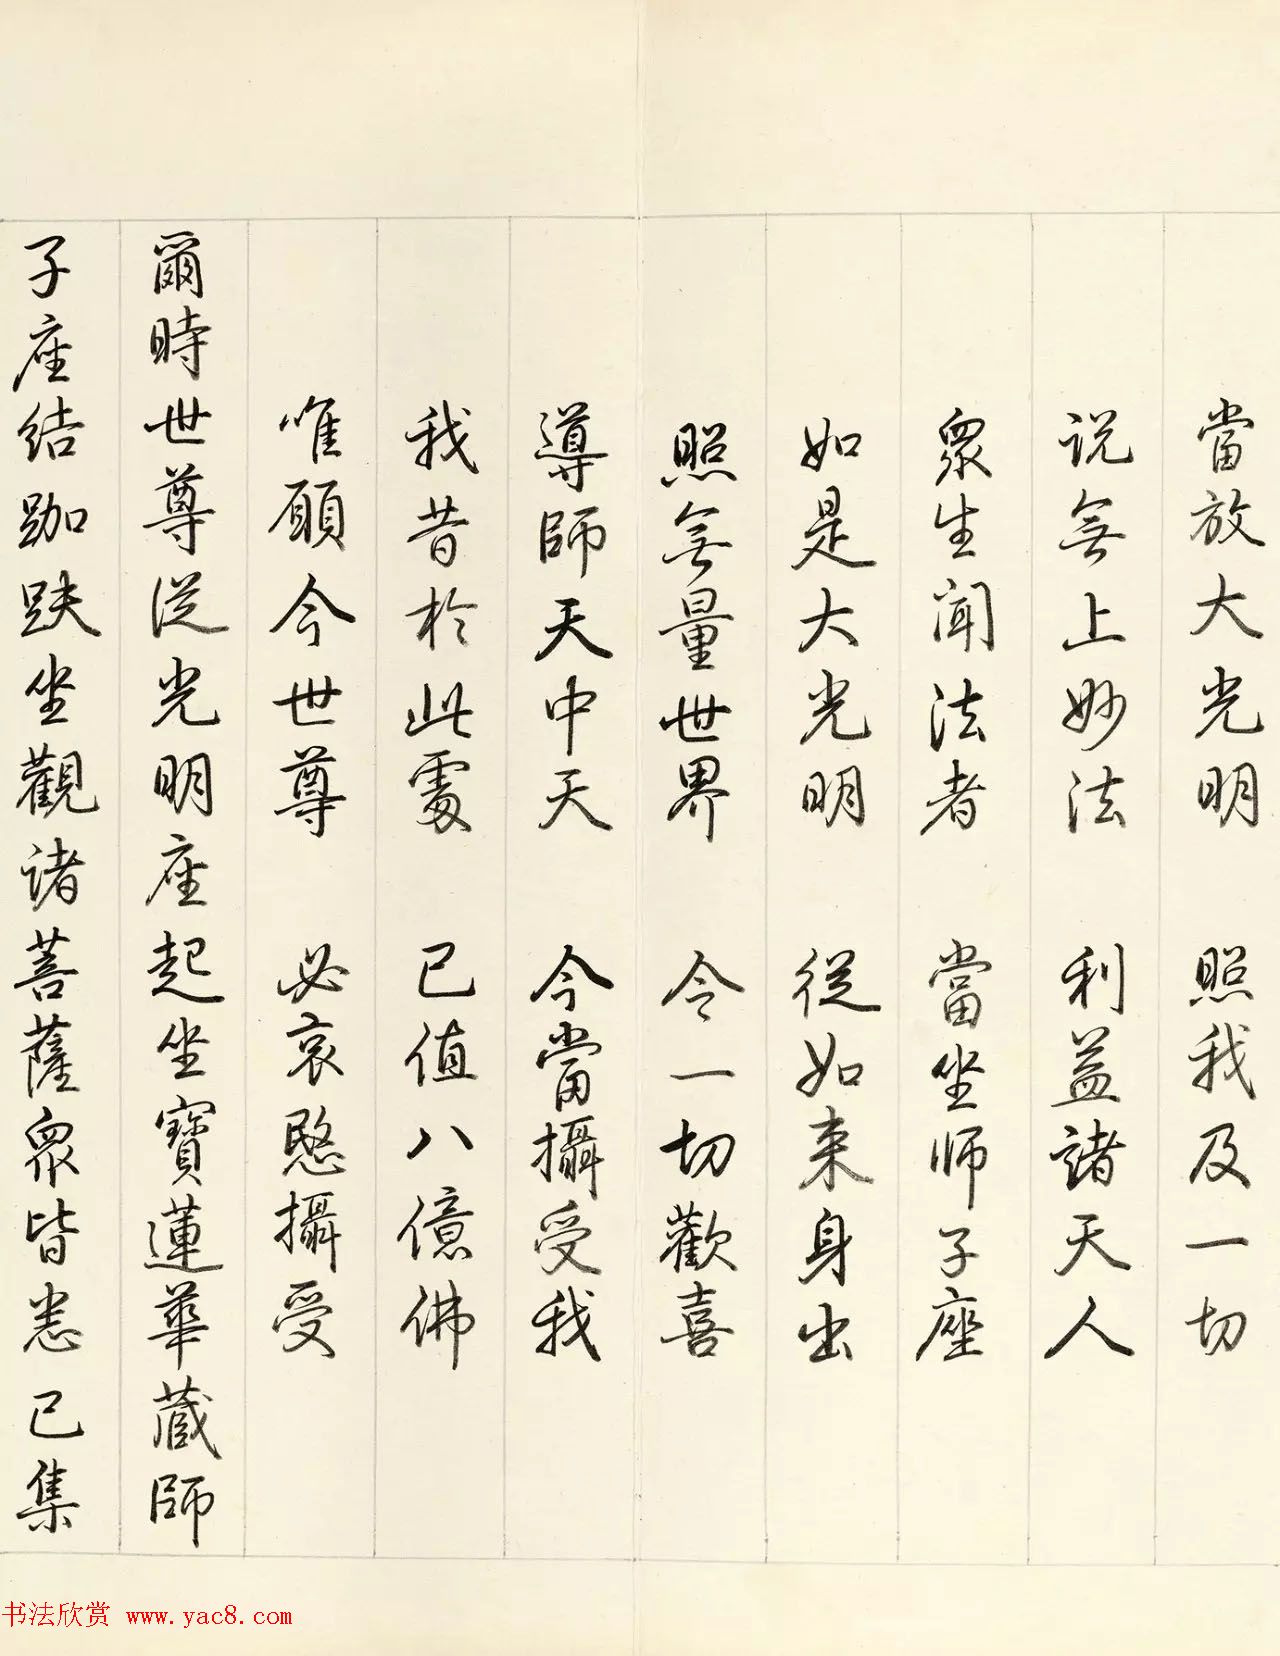 當放大光明 照我及一切
说無上妙法 利益諸天人
衆生闻法者 當坐师子座
如是大光明 從如来身出
照無量世界 令一切歡喜
導師天中天 今當攝受我
我昔於此處 已值八億佛
唯願今世尊 必哀愍攝受
爾時世尊從光明座起坐寶蓮華蔵師
子座结跏趺坐觀诸菩薩衆皆悉已集
书法欣赏 www.yac8.com